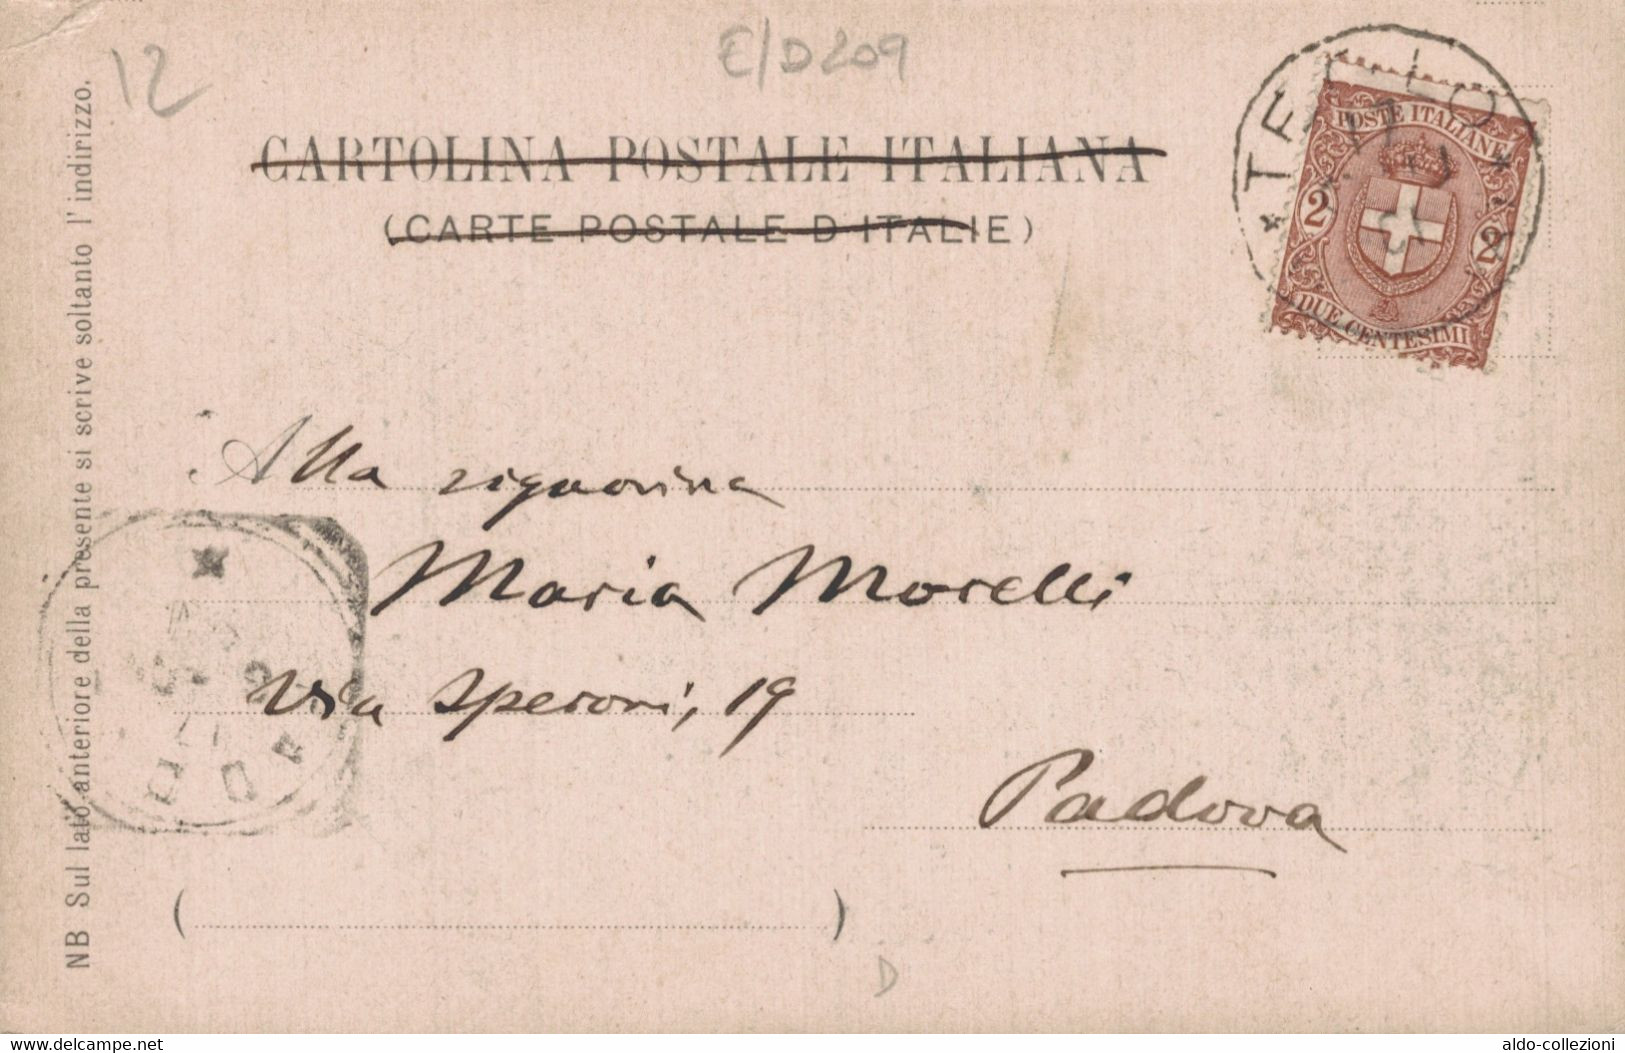 12
E/D209
CARTOLINA POSTALE ITALIANA
(CARTE POSTALE D ITALIE)
POSTE ITALIANE
2
2
DUE CENTESIMI
NB Sul lato anteriore della presente si scrive soltanto l' indirizzo.
Alla signorina
Maria Morelli
Via Speroni, 19
Padova
( )
D
www.delcampe.net
aldo-collezioni